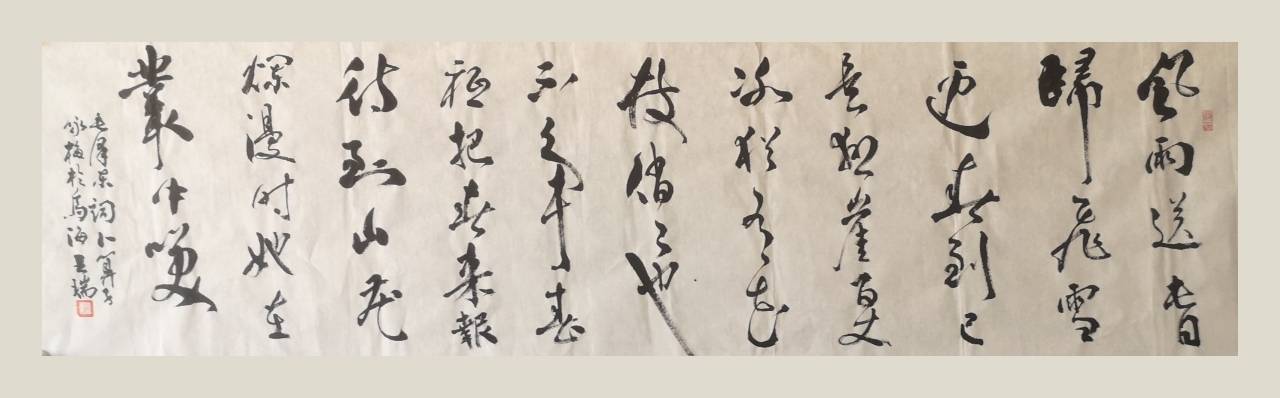 風雨送春
歸飛雪
迎春到已
是懸崖百丈
冰猶有花
枝俏々也
不争春
祇把春来報
待到山花
爛漫时她在
叢中咲
毛澤東詞卜算子
詠梅於烏海 瑞